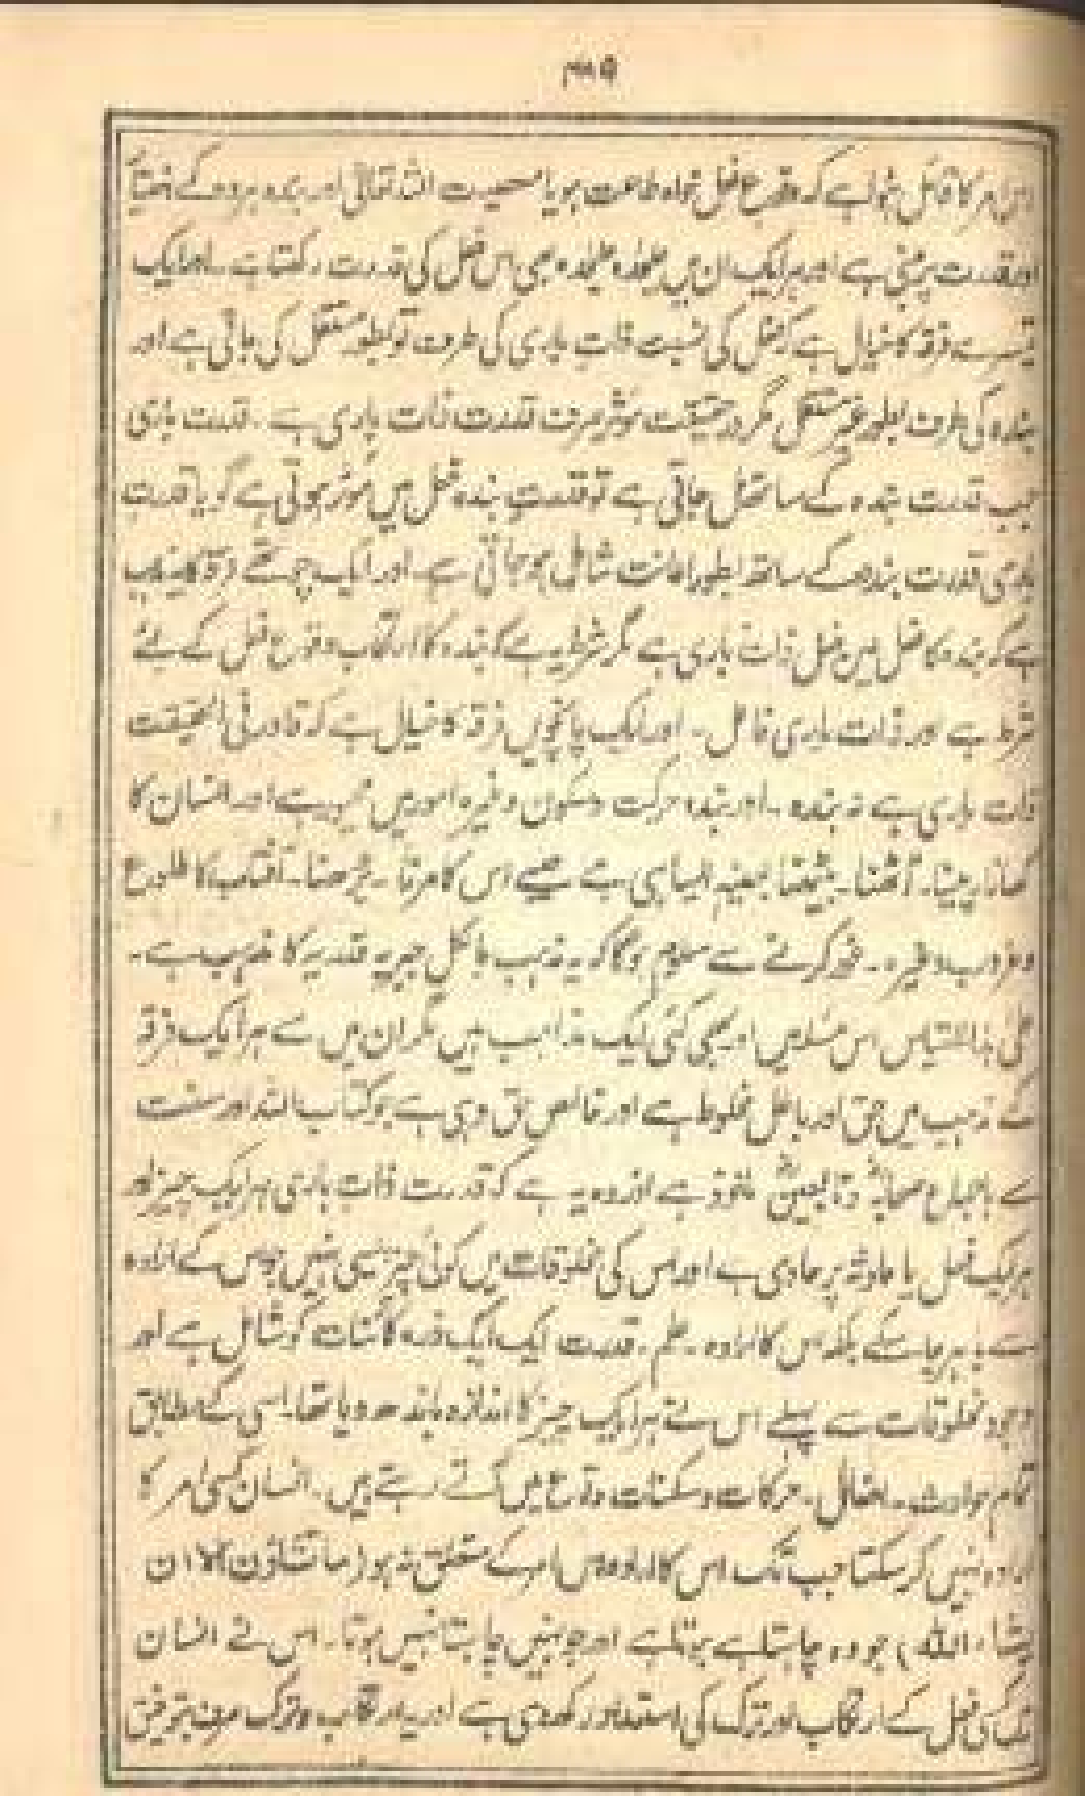 اس امر کا قائل ہوا ہے کہ وقوع فعل خواہ طاعت ہو یا معصیت اللہ تعالیٰ اور بندہ ہر دو کے
اور قدرت پر مبنی ہے اور ہر ایک ان میں علیحدہ علیحدہ بھی اس فعل کی قدرت رکھتا ہے۔ اور ایک
تیسرے فرقہ کا خیال ہے کہ فعل کی نسبت ذات باری کی طرف تو بطور مستقل کی جاتی ہے اور
بندہ کی طرف بطور غیر مستقل مگر درحقیقت مؤثر صرف قدرت ذات باری ہے۔ قدرت باری
جب قدرت بندہ کے ساتھ مل جاتی ہے تو قدرت بندہ فعل میں مؤثر ہوتی ہے گویا قدرت
باری قدرت بندہ کے ساتھ بطور اعانت شامل ہو جاتی ہے۔ اور ایک چوتھے فرقہ کا مذہب
ہے کہ بندہ کا فعل عین فعل ذات باری ہے مگر شرط یہ ہے کہ بندہ کا ارتکاب وقوع فعل کے لئے
شرط ہے اور ذات باری فاعل۔ اور ایک پانچویں فرقہ کا خیال ہے کہ قادر فی الحقیقت
ذات باری ہے نہ بندہ۔ اور بندہ حرکت وسکون وغیرہ امور میں مجبور ہے اور انسان کا
کھانا۔ پینا۔ اٹھنا۔ بیٹھنا بعینہٖ ایسا ہی ہے جیسے اس کا مرنا۔ بڑھنا۔ آفتاب کا طلوع
وغروب وغیرہ۔ غور کرنے سے معلوم ہوگا کہ یہ مذہب بالکل جبریہ قدریہ کا مذہب ہے۔
علیٰ ہذا القیاس اس مسئلہ میں اور بھی کئی ایک مذاہب ہیں مگر ان میں سے ہر ایک فرقہ
کے مذہب میں حق اور باطل مخلوط ہے اور خالص حق وہی ہے جو کتاب اللہ اور سنت
سے باجماع صحابہؓ وتابعینؒ ماخوذ ہے اور وہ یہ ہے کہ قدرت ذات باری ہر ایک چیز اور
ہر ایک فعل یا حادثہ پر حاوی ہے اور اس کی مخلوقات میں کوئی چیز ایسی نہیں جو اس کے ارادہ
سے باہر جا سکے بلکہ اس کا ارادہ۔ علم۔ قدرت ایک ایک ذرہ کائنات کو شامل ہے اور
وجود مخلوقات سے پہلے اس نے ہر ایک چیز کا اندازہ باندھ دیا تھا۔ اسی کے مطابق
تمام حوادث۔ افعال۔ حرکات وسکنات وقوع میں آتے رہتے ہیں۔ انسان کسی امر کا
ارادہ نہیں کر سکتا جب تک اس کا ارادہ اس امر کے متعلق نہ ہو (ما تشاؤن الا ان
یشاء اللہ) جو وہ چاہتا ہے ہوتا ہے اور جو نہیں چاہتا نہیں ہوتا۔ اس نے انسان
فعل کے ارتکاب اور ترک کی استعداد رکھ دی ہے اور یہ ارتکاب وترک